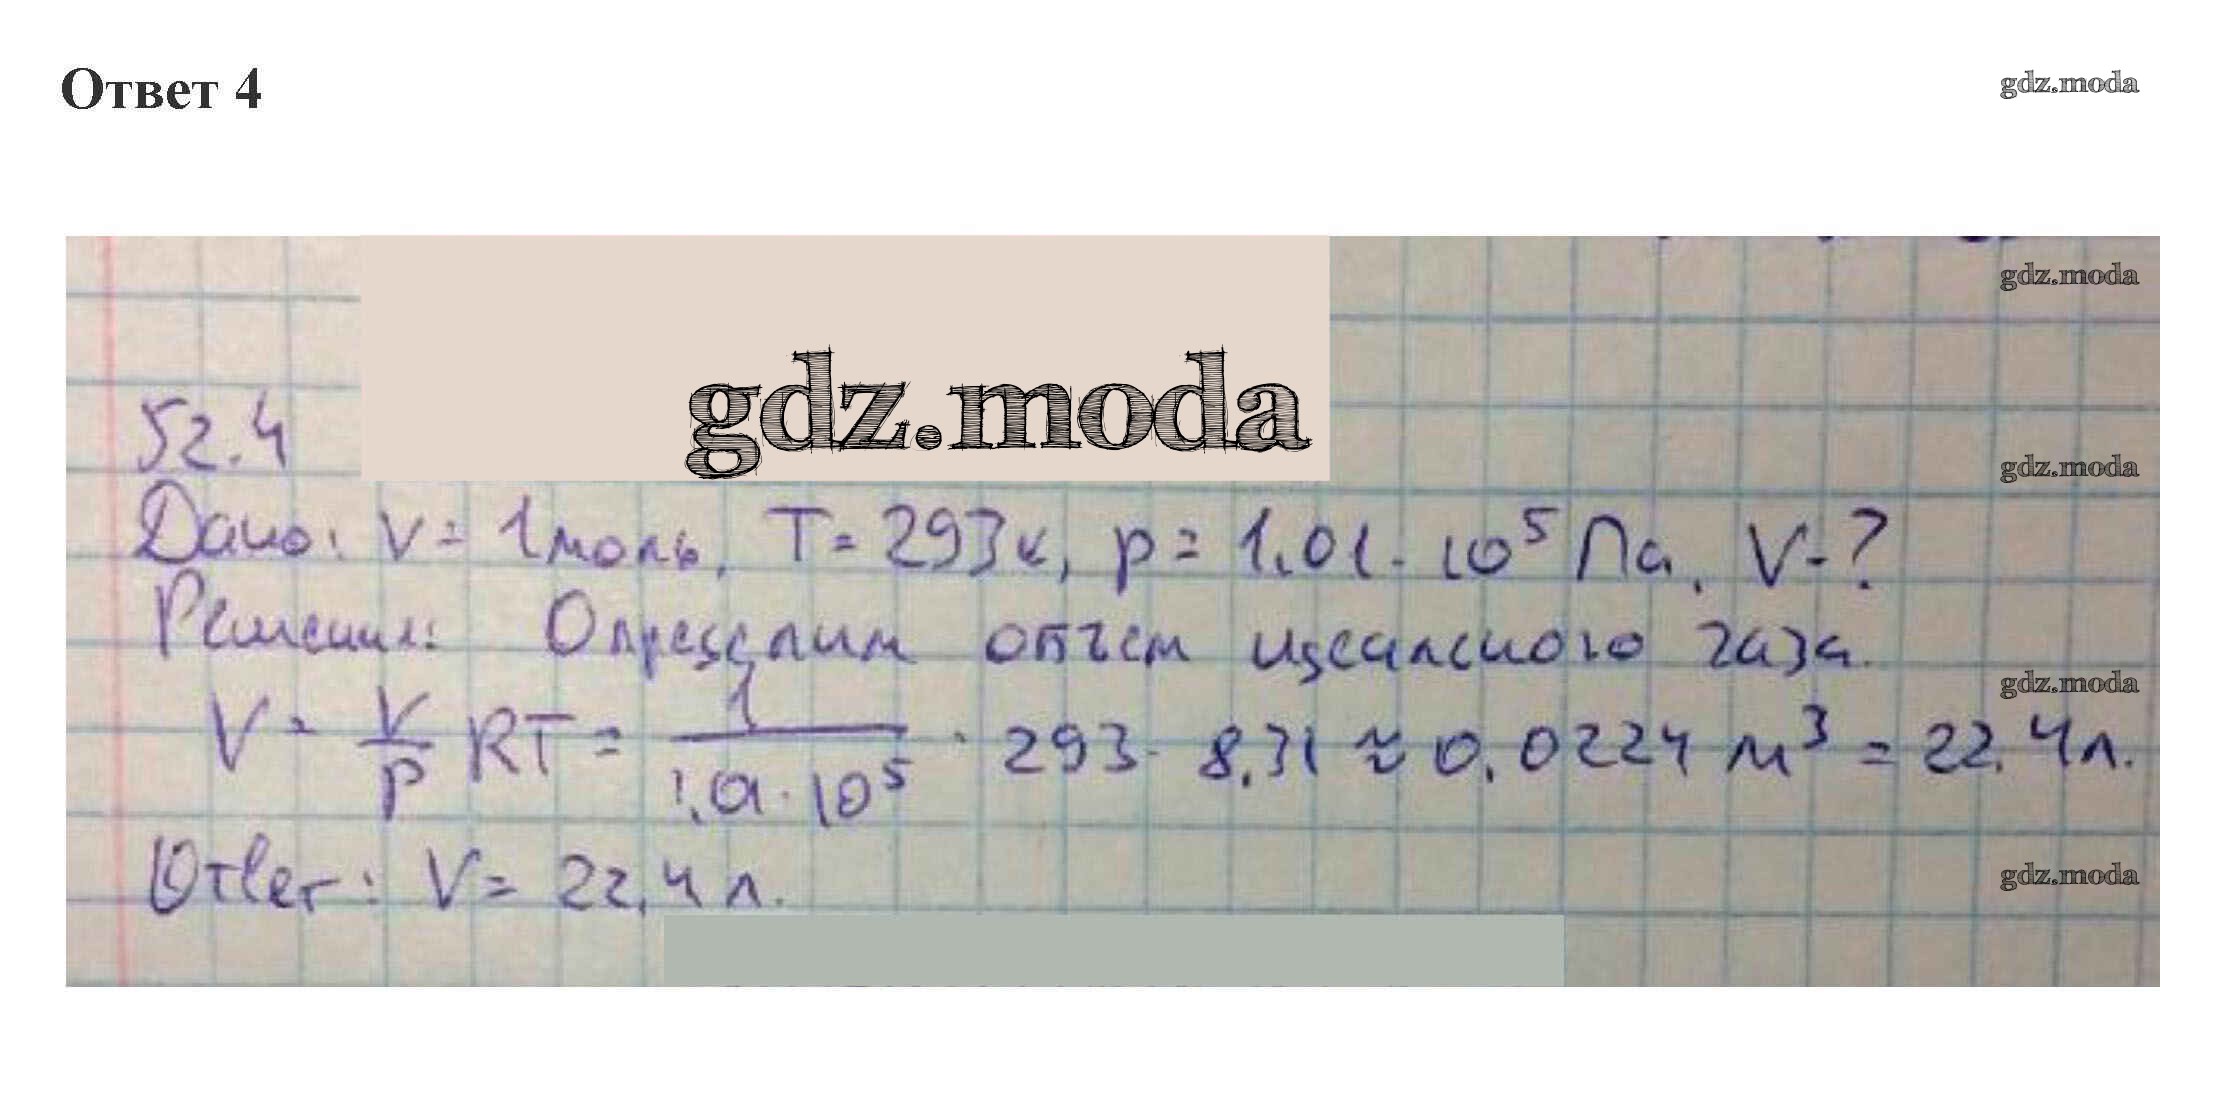 Ответ 4
gdz.moda
gdz.moda
gdz.moda
52.4
gdz.moda
Дано: ν = 1 моль, T = 293 К, p = 1,01 · 10⁵ Па. V - ?
Решение: Определим объем идеального газа.
gdz.moda
V = ν/p RT = 1/(1,01 · 10⁵) · 293 · 8,31 ≈ 0,0224 м³ = 22,4 л.
Ответ: V = 22,4 л.
gdz.moda